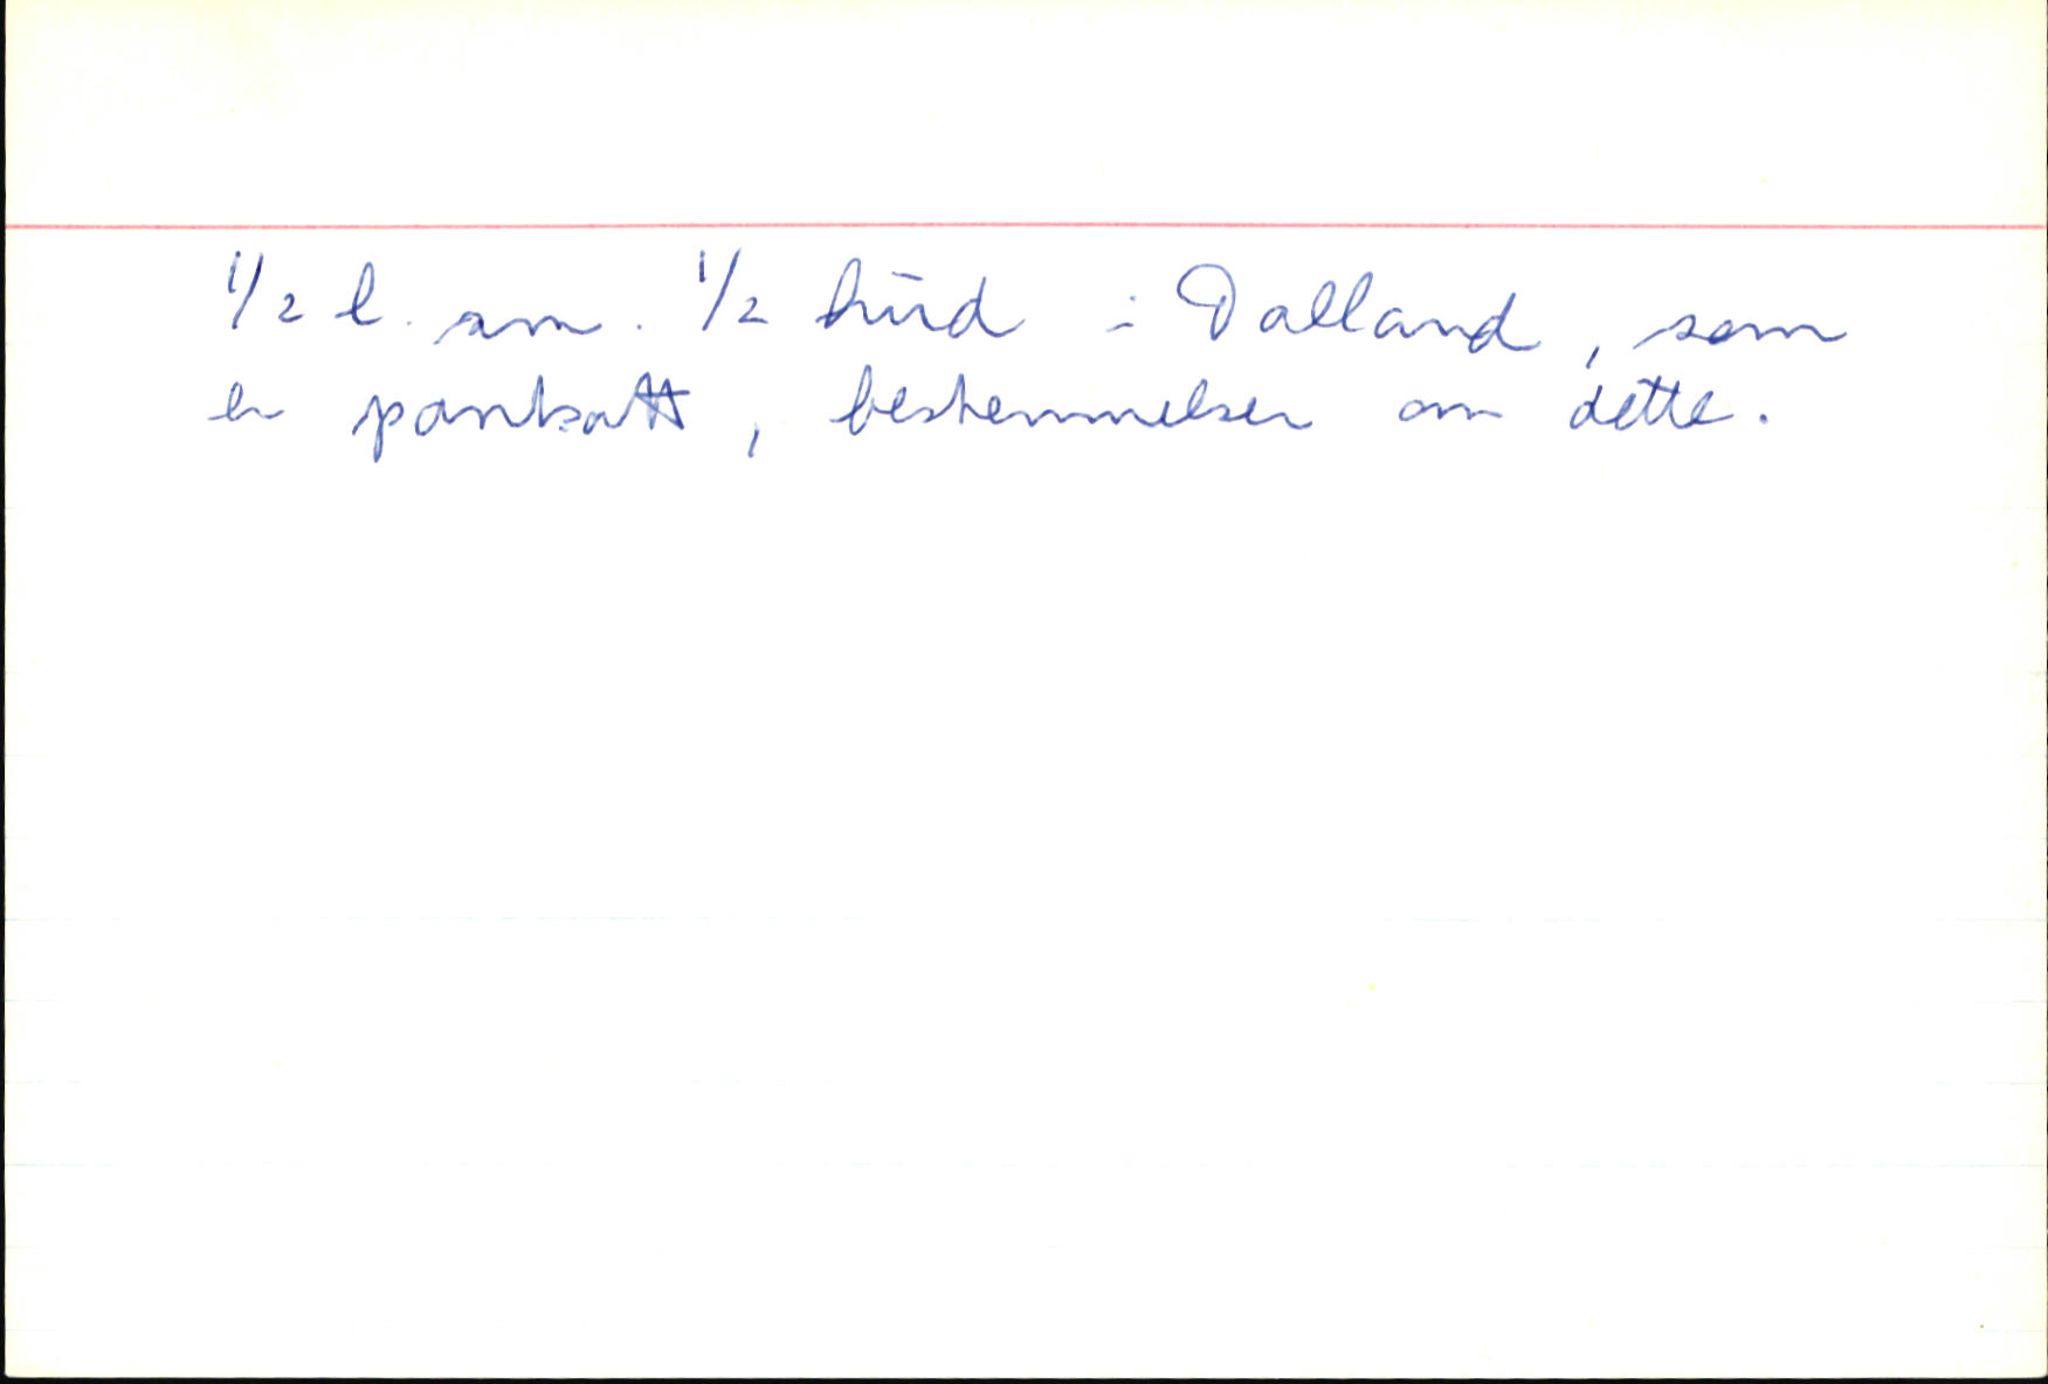 1/2 l. sm. 1/2 hud i Dalland, som
er pantsatt, bestemmelser om dette.